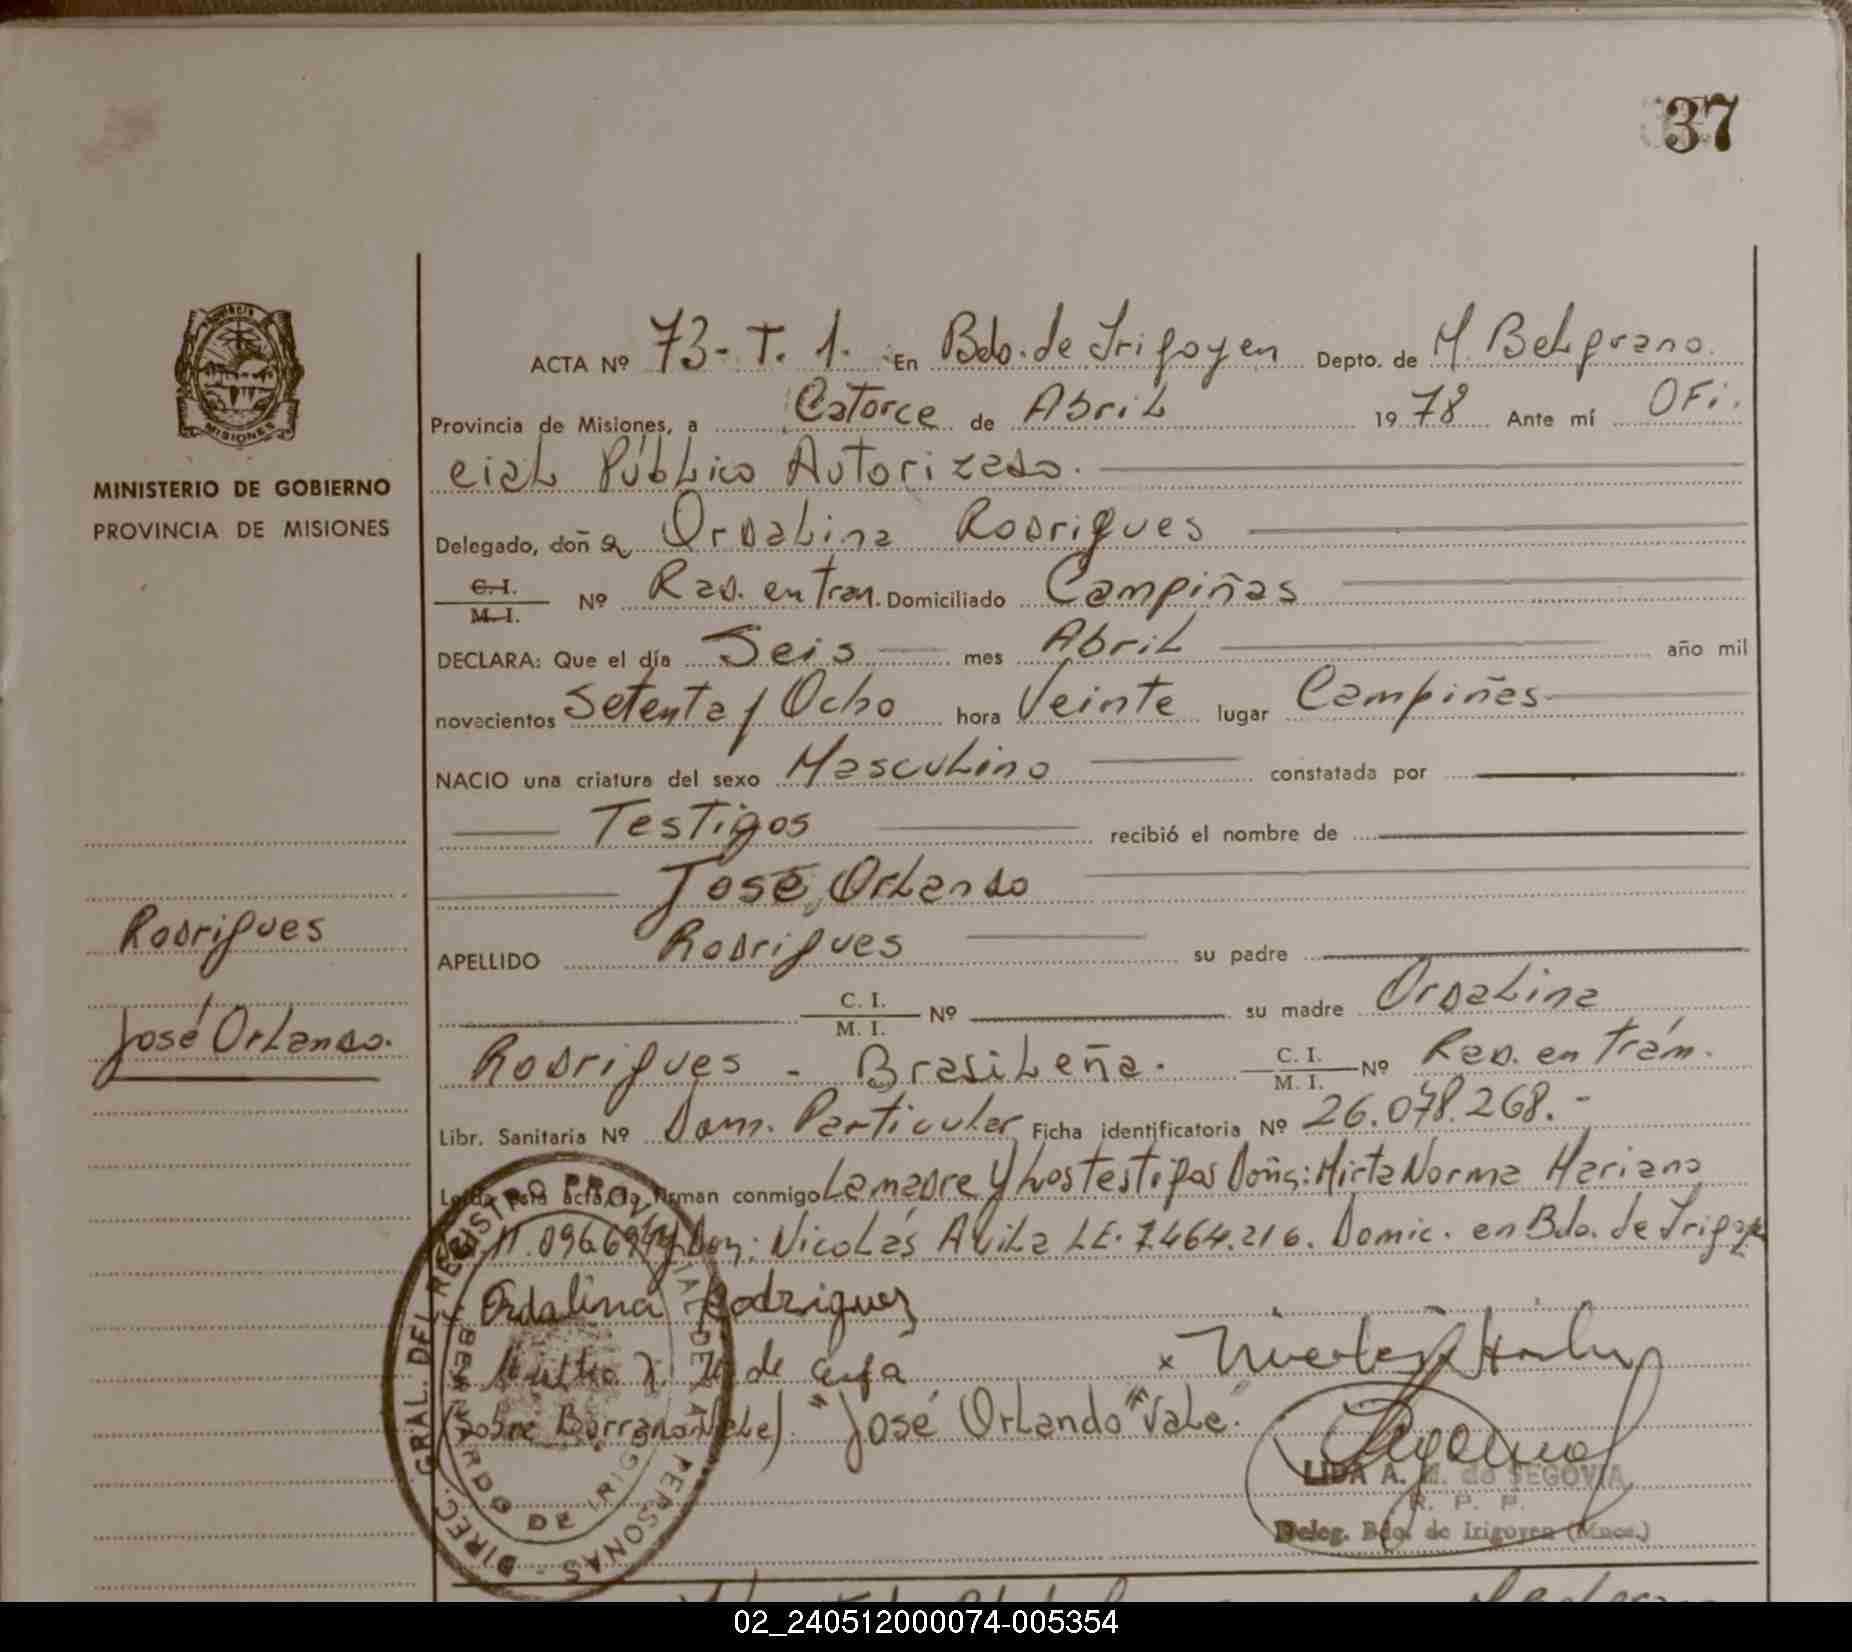 37
ACTA Nº 73-T. 1. En Bdo. de Irigoyen Depto. de M. Belgrano.
Provincia de Misiones, a Catorce de Abril 1978 Ante mí Ofi.
cial Público Autorizado.
Delegado, doña Ordalina Rodrigues
C. I. M. I. Nº Rad. en Tram. Domiciliado Campiñas
DECLARA: Que el día Seis mes Abril año mil
novecientos Setenta y Ocho hora Veinte lugar Campiñas
NACIO una criatura del sexo Masculino constatada por
Testigos recibió el nombre de
José Orlando
APELLIDO Rodrigues su padre
C. I. M. I. Nº su madre Ordalina
Rodrigues - Brasileña. C. I. M. I. Nº Rad. en Trám.
Libr. Sanitaria Nº Dom. Particular Ficha identificatoria Nº 26.078.268.-
Leída esta acta, la firman conmigo La madre y Los testigos Doña: Mirta Norma Mariano
y Don: Nicolás Avila LE. 7.464.216. Domic. en Bdo. de Irigoy
Ordalina Rodriguez
(Sobre Borrado Vale). "José Orlando" Vale.
LIDA A. M. de SEGOVIA
R. P. P.
Deleg. Bdo. de Irigoyen (Mnes.)
MISIONES
MINISTERIO DE GOBIERNO
PROVINCIA DE MISIONES
Rodrigues
José Orlando.
DIREC. GRAL. DEL REGISTRO PROVINCIAL DE LAS PERSONAS
BERNARDO DE IRIGOYEN
02_240512000074-005354